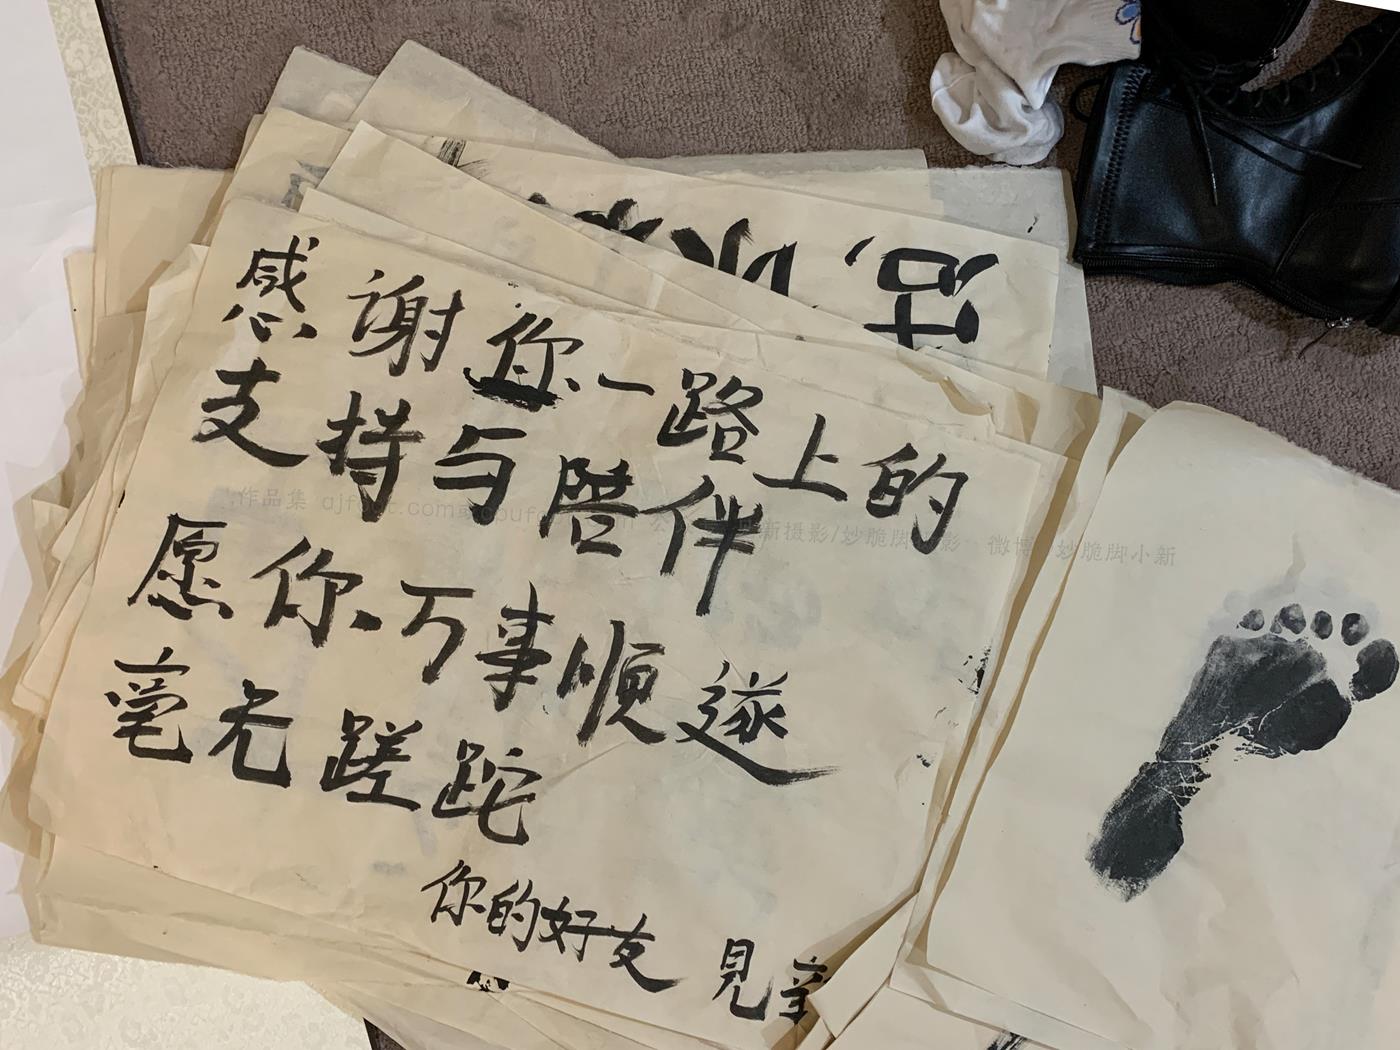 感谢你一路上的
支持与陪伴
愿你万事顺遂
毫无蹉跎
你的好友 見
作品集
新摄影/妙脆脚
微博 妙脆脚小新